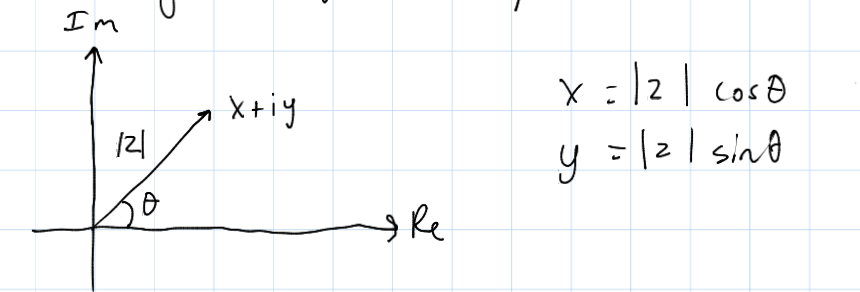 Im
x+iy
|z|
θ
Re
x = |z| cosθ
y = |z| sinθ